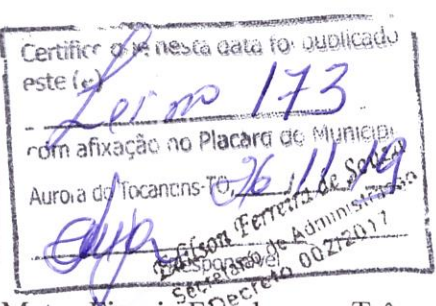 Certifico que nesta data foi publicado
este (a)
Lei nº 173
com afixação no Placard do Municipi
Aurora do Tocantins-TO, 26/11/19
Edilson Ferreira de Souza
Secretário de Administração
Decreto 002/2017
Responsável